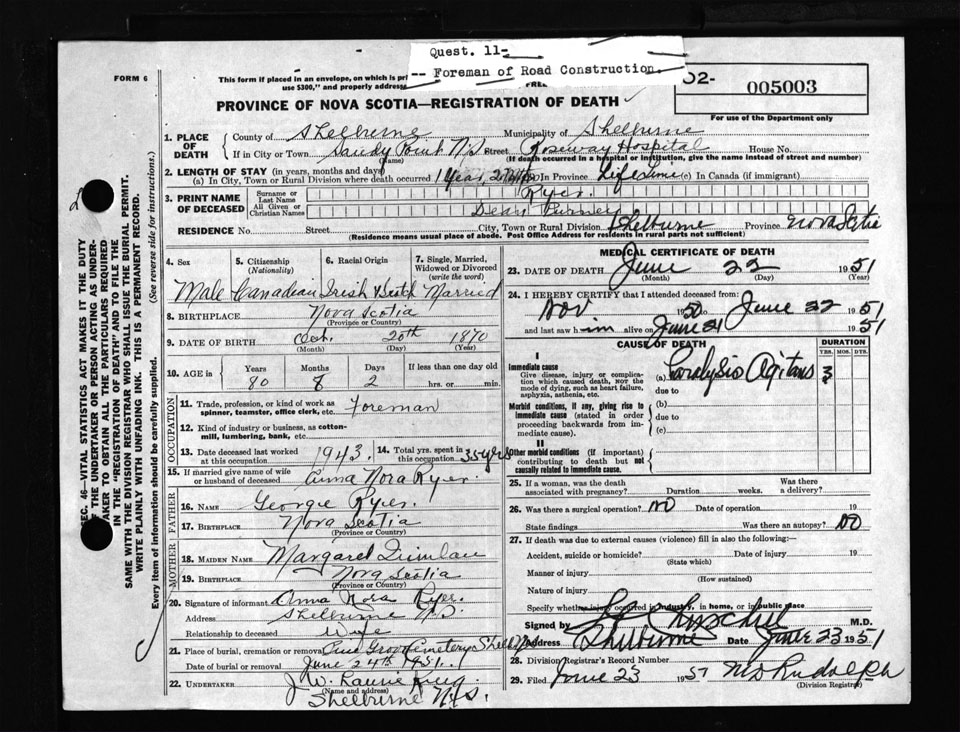 Quest. 11-
-- Foreman of Road Construction.
FORM 6
This form if placed in an envelope, on which is
use $300," and properly
FREE
02-
005003
For use of the Department only
PROVINCE OF NOVA SCOTIA—REGISTRATION OF DEATH
1. PLACE OF DEATH
County of Shelburne Municipality of Shelburne
If in City or Town Sandy Point N.S. Street Roseway Hospital House No.
(Name) (If death occurred in a hospital or institution, give the name instead of street and number)
2. LENGTH OF STAY (in years, months and days)
(a) In City, Town or Rural Division where death occurred 1 year, 2 In Province Life Time (c) In Canada (if immigrant)
3. PRINT NAME OF DECEASED
Surname or Last Name Ryer.
All Given or Christian Names Purney
RESIDENCE No. Street City, Town or Rural Division Shelburne Province Nova Scotia
(Residence means usual place of abode. Post Office Address for residents in rural parts not sufficient)
4. Sex 5. Citizenship (Nationality) 6. Racial Origin 7. Single, Married, Widowed or Divorced (write the word)
Male Canadian Irish & Scotch Married
8. BIRTHPLACE Nova Scotia
(Province or Country)
9. DATE OF BIRTH Oct. 20th 1870
(Month) (Day) (Year)
10. AGE in Years Months Days If less than one day old
80 8 2 hrs. or min.
OCCUPATION
11. Trade, profession, or kind of work as spinner, teamster, office clerk, etc. Foreman
12. Kind of industry or business, as cotton-mill, lumbering, bank, etc.
13. Date deceased last worked at this occupation 1943. 14. Total yrs. spent in this occupation 35 yrs
15. If married give name of wife or husband of deceased Anna Nora Ryer.
FATHER
16. NAME George Ryer.
17. BIRTHPLACE Nova Scotia
(Province or Country)
MOTHER
18. MAIDEN NAME Margaret
19. BIRTHPLACE Nova Scotia
(Province or Country)
20. Signature of informant Anna Nora Ryer.
Address Shelburne N.S.
Relationship to deceased Wife
21. Place of burial, cremation or removal Pine Grove Cemetery
Date of burial or removal June 24th 1951.
22. UNDERTAKER J. W.
(Name and address)
Shelburne N.S.
MEDICAL CERTIFICATE OF DEATH
23. DATE OF DEATH June 22 1951
(Month) (Day) (Year)
24. I HEREBY CERTIFY that I attended deceased from:
Nov 1950 to June 22 1951
and last saw him alive on June 21 1951
CAUSE OF DEATH DURATION
YRS. MOS. DYS.
I
Immediate cause
Give disease, injury or complication which caused death, NOT the mode of dying, such as heart failure, asphyxia, asthenia, etc.
(a) Paralysis Agitans 3
due to
Morbid conditions, if any, giving rise to immediate cause (stated in order proceeding backwards from immediate cause).
(b)
due to
(c)
II
Other morbid conditions (if important) contributing to death but not causally related to immediate cause.
25. If a woman, was the death associated with pregnancy? Duration weeks. Was there a delivery?
26. Was there a surgical operation? NO Date of operation 19
State findings Was there an autopsy? NO
27. If death was due to external causes (violence) fill in also the following:
Accident, suicide or homicide? Date of injury 19
(State which)
Manner of injury
(How sustained)
Nature of injury
Specify whether injury occurred in industry, in home, or in public place
Signed by M.D.
Address Shelburne Date June 23 1951
28. Division Registrar's Record Number
29. Filed June 23 1951 Rudolph
(Division Registrar)
SEC. 46—VITAL STATISTICS ACT MAKES IT THE DUTY
OF THE UNDERTAKER OR PERSON ACTING AS UNDER-
TAKER TO OBTAIN ALL THE PARTICULARS REQUIRED
IN THE "REGISTRATION OF DEATH" AND TO FILE THE
SAME WITH THE DIVISION REGISTRAR WHO SHALL ISSUE THE BURIAL PERMIT.
WRITE PLAINLY WITH UNFADING INK. THIS IS A PERMANENT RECORD.
Every item of information should be carefully supplied. (See reverse side for instructions.)